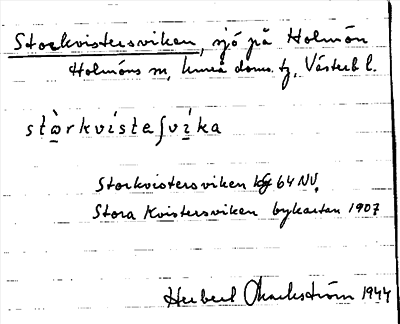 Storkvistersviken, sjö på Holmön
Holmöns sn, Umeå doms. tg, Västerb l.
stὼrkvísteʃvi̱ka
Storkvistersviken kg 64 NV,
Stora Kvistersviken bykartan 1907
Herbert Markström 1944